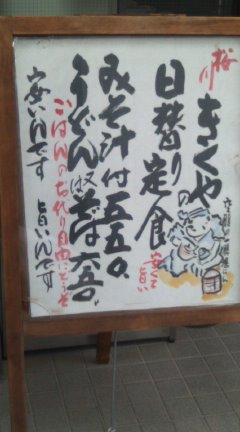 桜川
きくや
日替りの定食
安くて
旨い
みそ汁付五五〇
うどん又はそば六五〇
ごはんのお代り自由にどうぞ
安いんです 旨いんです